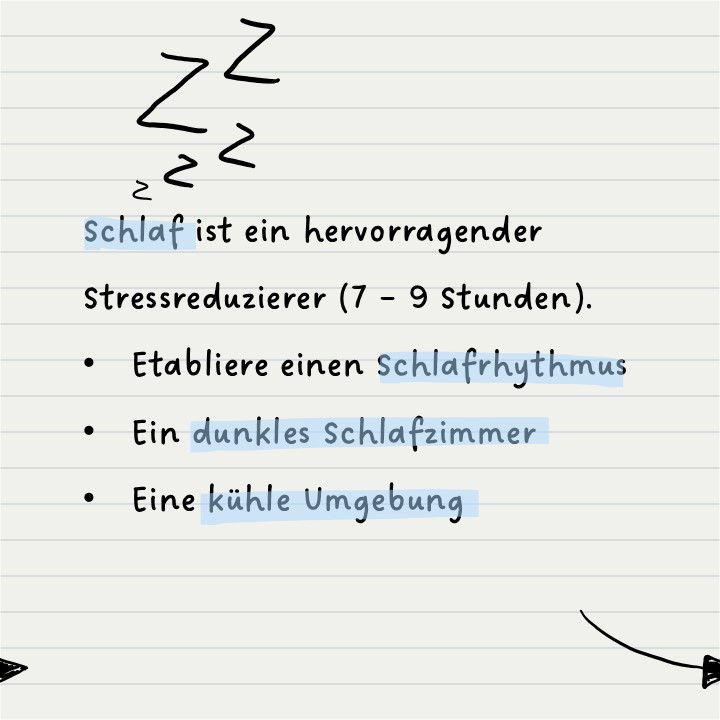 Z Z
z z z
Schlaf ist ein hervorragender
Stressreduzierer (7 - 9 Stunden).
• Etabliere einen Schlafrhythmus
• Ein dunkles Schlafzimmer
• Eine kühle Umgebung